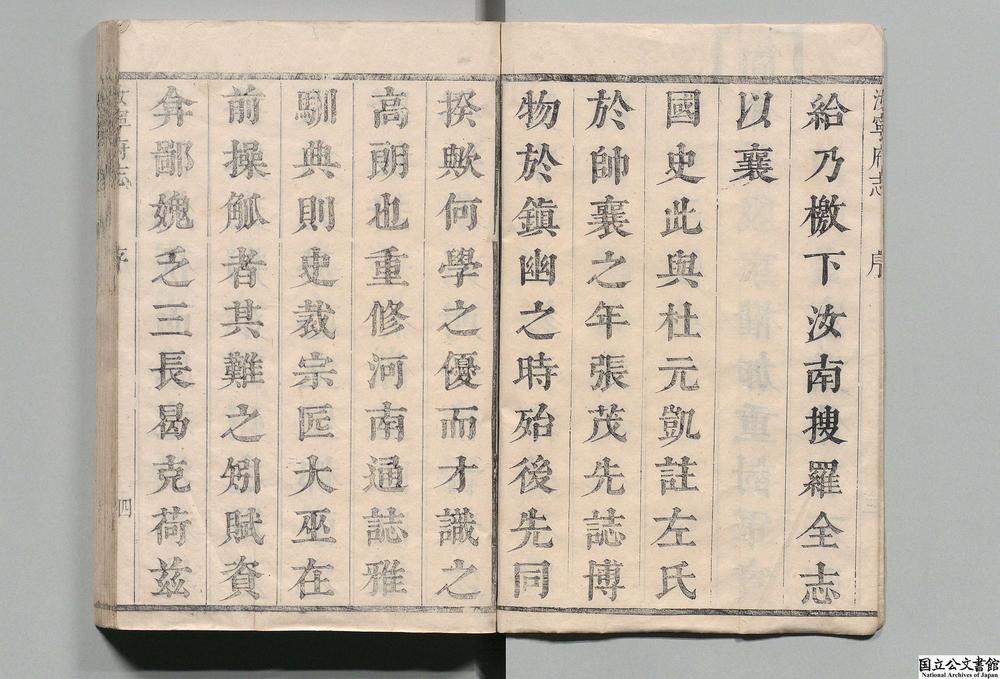 給乃檄下汝南搜羅全志
以襄
國史此與杜元凱註左氏
於帥襄之年張茂先誌博
物於鎮幽之時殆後先同
揆歟何學之優而才識之
高朗也重修河南通誌雅
馴典則史裁宗匠大巫在
前操觚者其難之矧賦資
弇鄙媿乏三長曷克荷茲
汝寧府志
序
汝寧府志
序
四
国立公文書館
National Archives of Japan